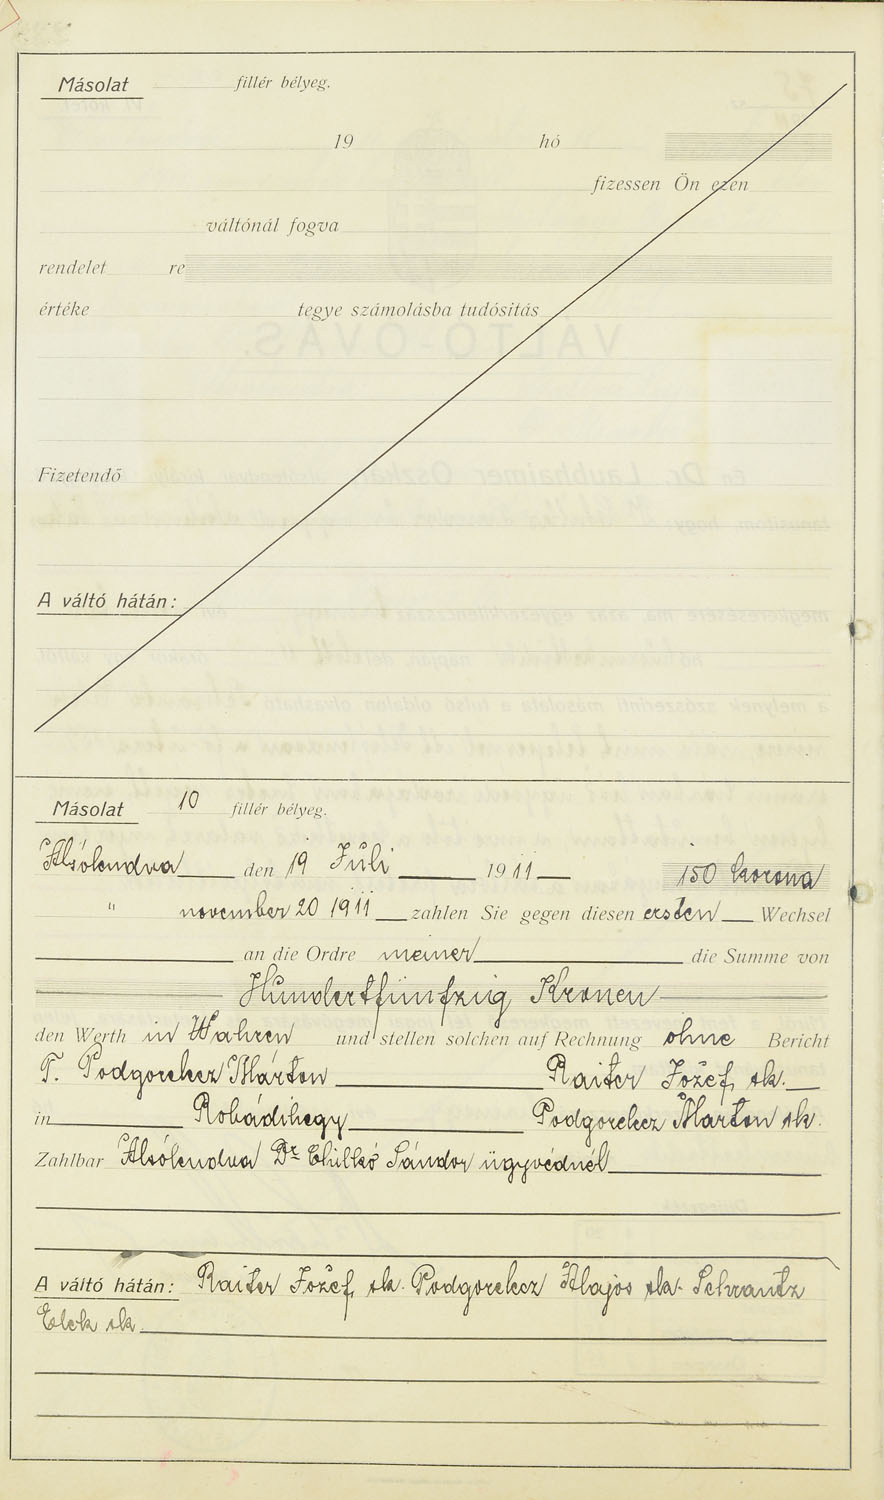 Másolat fillér bélyeg.
19 hó
fizessen Ön ezen
váltónál fogva
rendelet re
értéke tegye számolásba tudósitás
Fizetendő
A váltó hátán:
Másolat 10 fillér bélyeg.
Alsólendva den 19 Juli 1911 150 korona
" november 20 1911 zahlen Sie gegen diesen ersten Wechsel
an die Ordre meiner die Summe von
Hundertfünfzig Kronen
den Werth in Wahren und stellen solchen auf Rechnung ohne Bericht
T. Podgorelecz Márton Raiter Jozéf sk.
in Robádihegy Podgorelecz Márton sk.
Zahlbar Alsólendva Dr Sándor ügyvédnél
A váltó hátán: Raiter Jozéf sk. Podgorelecz Alajos sk. Schrantz
Elek sk.